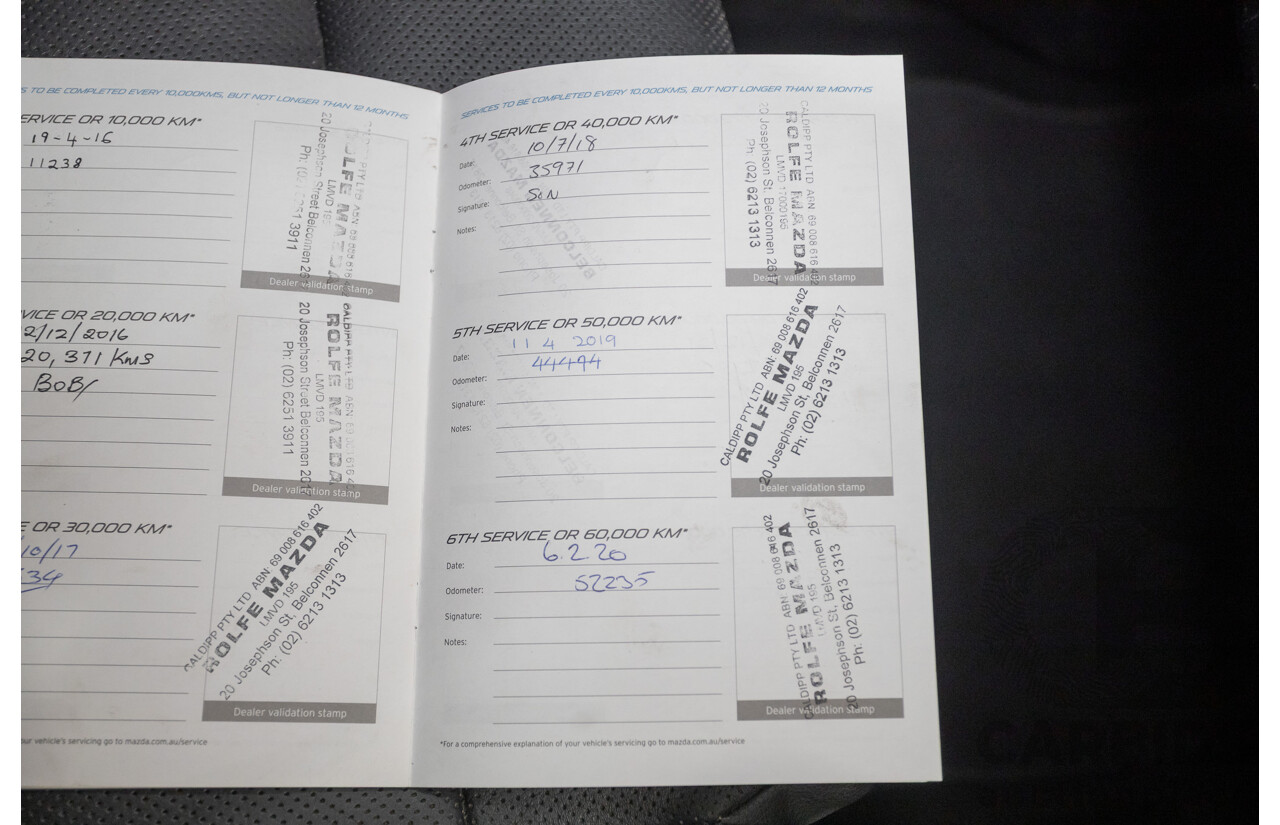 S TO BE COMPLETED EVERY 10,000KMS, BUT NOT LONGER THAN 12 MONTHS
ERVICE OR 10,000 KM*
19-4-16
11238
CALDIPP PTY LTD ABN: 69 008 616 402
ROLFE MAZDA
LMVD 195
20 Josephson Street Belconnen 2617
Ph: (02) 6251 3911
Dealer validation stamp
VICE OR 20,000 KM*
2/12/2016
20,371 Kms
BOB/
CALDIPP PTY LTD ABN: 69 008 616 402
ROLFE MAZDA
LMVD 195
20 Josephson Street Belconnen 2617
Ph: (02) 6251 3911
Dealer validation stamp
E OR 30,000 KM*
10/17
34
CALDIPP PTY LTD ABN: 69 008 616 402
ROLFE MAZDA
LMVD 195
20 Josephson St, Belconnen 2617
Ph: (02) 6213 1313
Dealer validation stamp
our vehicle's servicing go to mazda.com.au/service
SERVICES TO BE COMPLETED EVERY 10,000KMS, BUT NOT LONGER THAN 12 MONTHS
4TH SERVICE OR 40,000 KM*
Date: 10/7/18
Odometer: 35971
Signature:
Notes:
CALDIPP PTY LTD ABN 69 008 616 4
ROLFE MAZDA
LMVD 17000195
20 Josephson St. Belconnen 2617
Ph (02) 6213 1313
Dealer validation stamp
5TH SERVICE OR 50,000 KM*
Date: 11 4 2019
Odometer: 44494
Signature:
Notes:
CALDIPP PTY LTD ABN: 69 008 616 402
ROLFE MAZDA
LMVD 195
20 Josephson St, Belconnen 2617
Ph: (02) 6213 1313
Dealer validation stamp
6TH SERVICE OR 60,000 KM*
Date: 6.2.20
Odometer: 52235
Signature:
Notes:
CALDIPP PTY LTD ABN 69 008 616 402
ROLFE MAZDA
LMVD 195
20 Josephson St, Belconnen 2617
Ph: (02) 6213 1313
Dealer validation stamp
*For a comprehensive explanation of your vehicle's servicing go to mazda.com.au/service